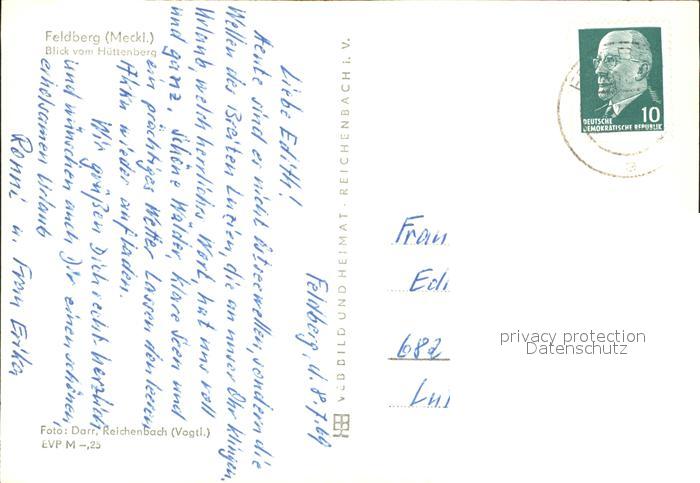 Feldberg (Meckl.)
Blick vom Hüttenberg
Feldberg, d. 8.7.69
Liebe Edith!
Heute sind es nicht Ostseewellen, sondern die
Wellen des Breiten Luzin, die an unser Ohr klingen.
Urlaub, welch herrliches Wort, hat uns voll
und ganz. Schöne Wälder, klare Seen und
ein prächtiges Wetter lassen den leeren
Akku wieder aufladen.
Wir grüßen Dich recht herzlich
und wünschen auch Dir einen schönen,
erholsamen Urlaub
Ronni u. Frau Erika
Foto: Darr, Reichenbach (Vogtl.)
EVP M -,25
VEB BILD UND HEIMAT · REICHENBACH i. V.
10
DEUTSCHE
DEMOKRATISCHE REPUBLIK
Frau
Edi
682
privacy protection
Datenschutz